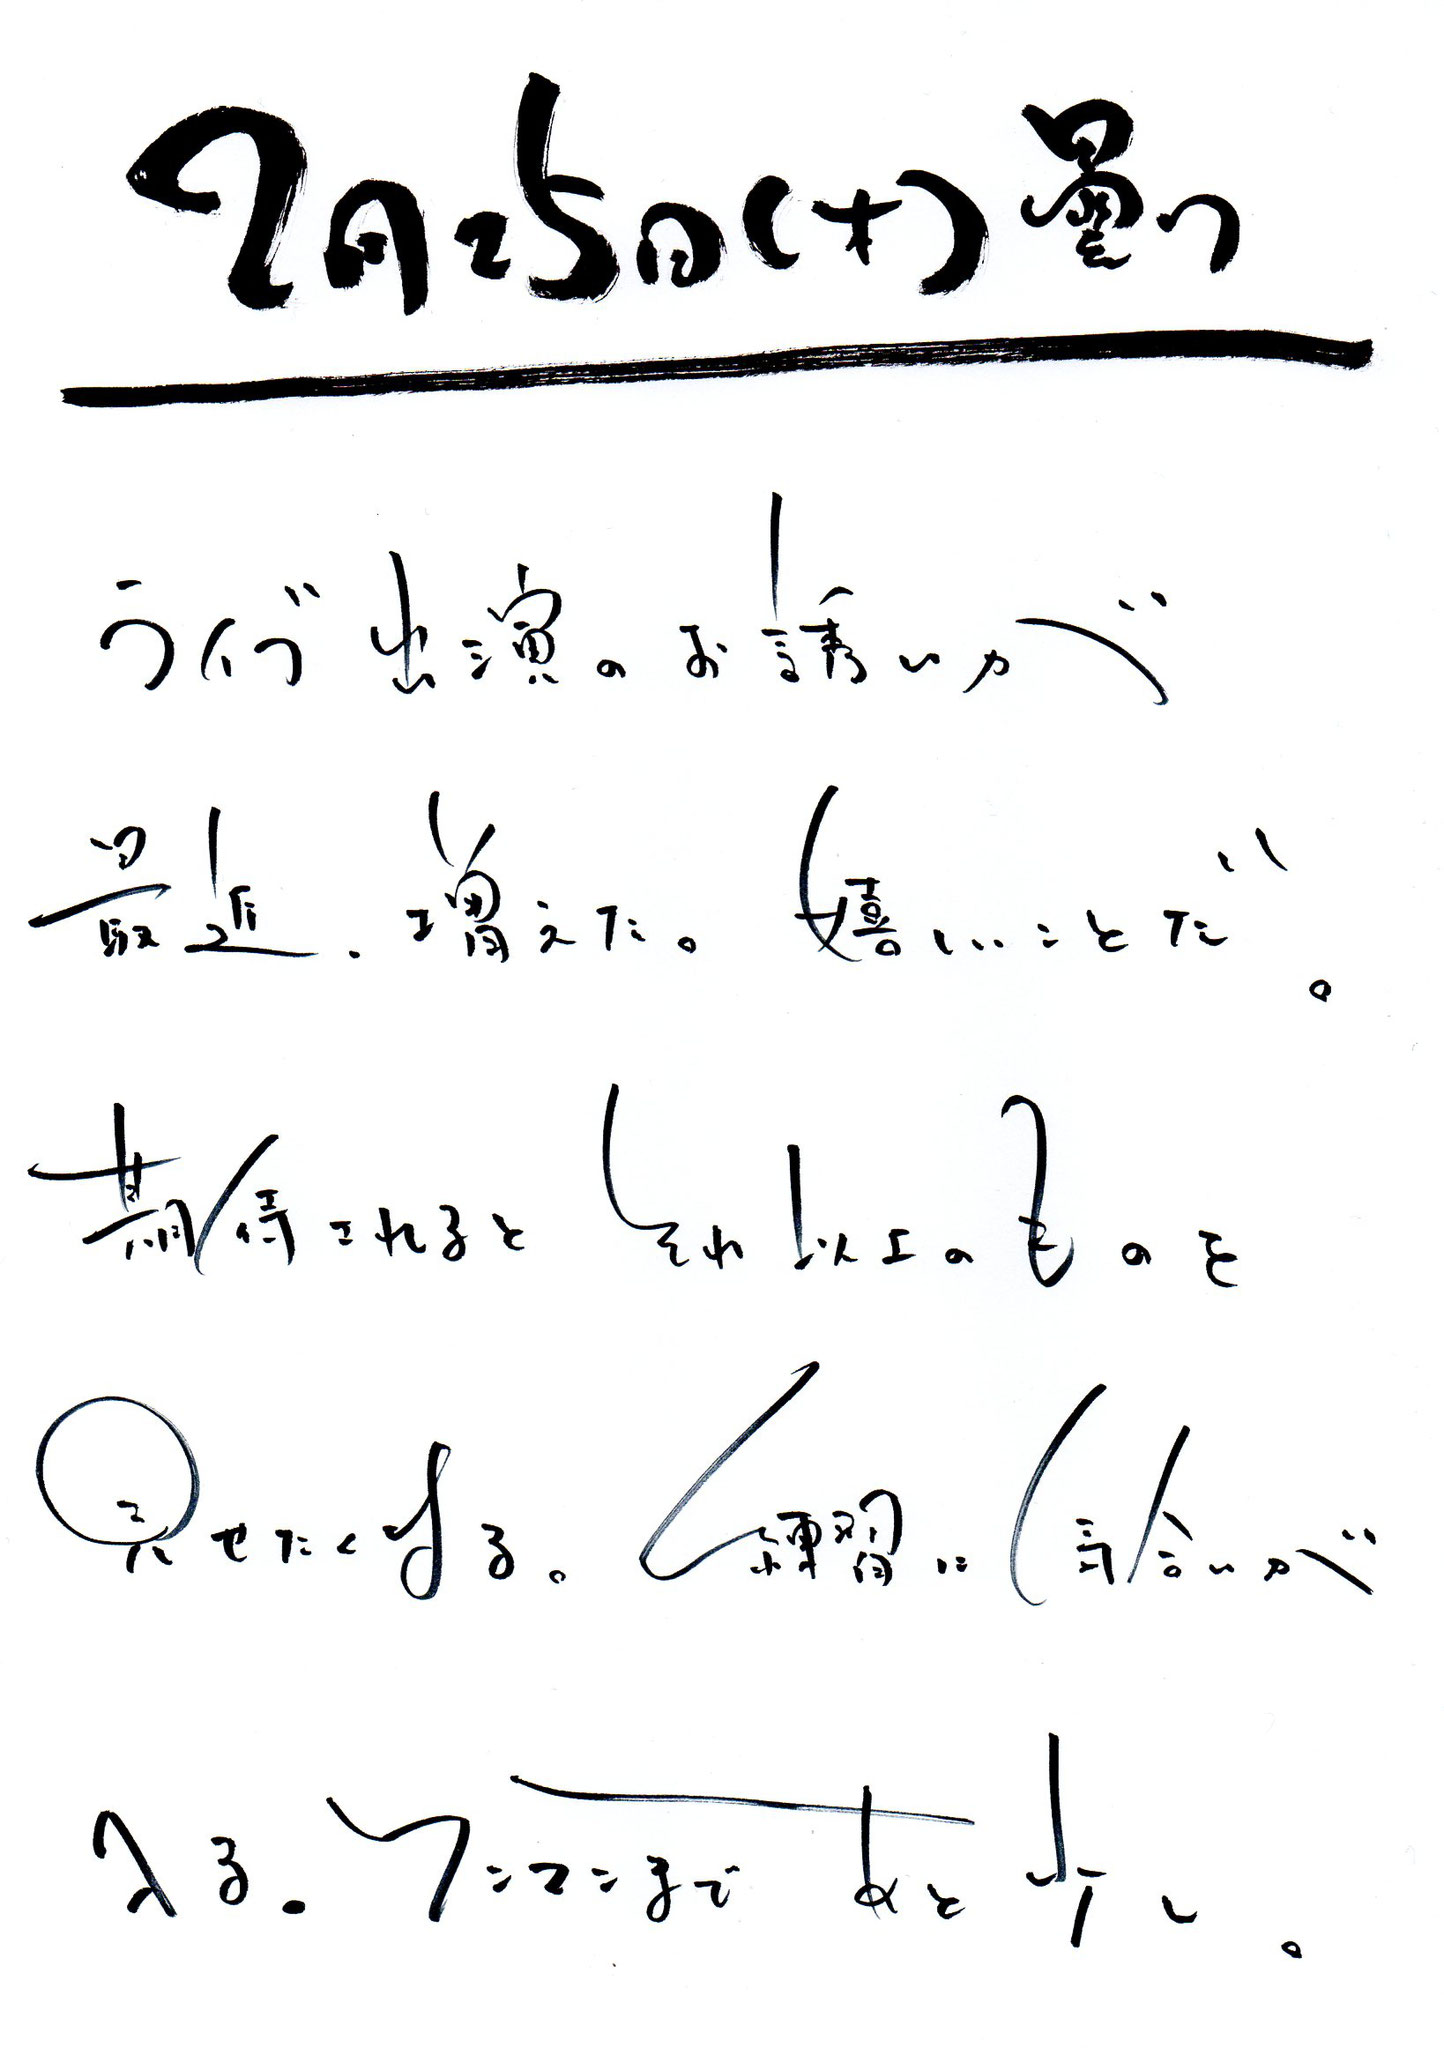 7月25日(木)曇り
ライブ出演のお誘いが
最近、増えた。嬉しいことだ。
期待されるとそれ以上のものを
見せたくなる。練習に気合いが
入る。ワンマンまであと少し。